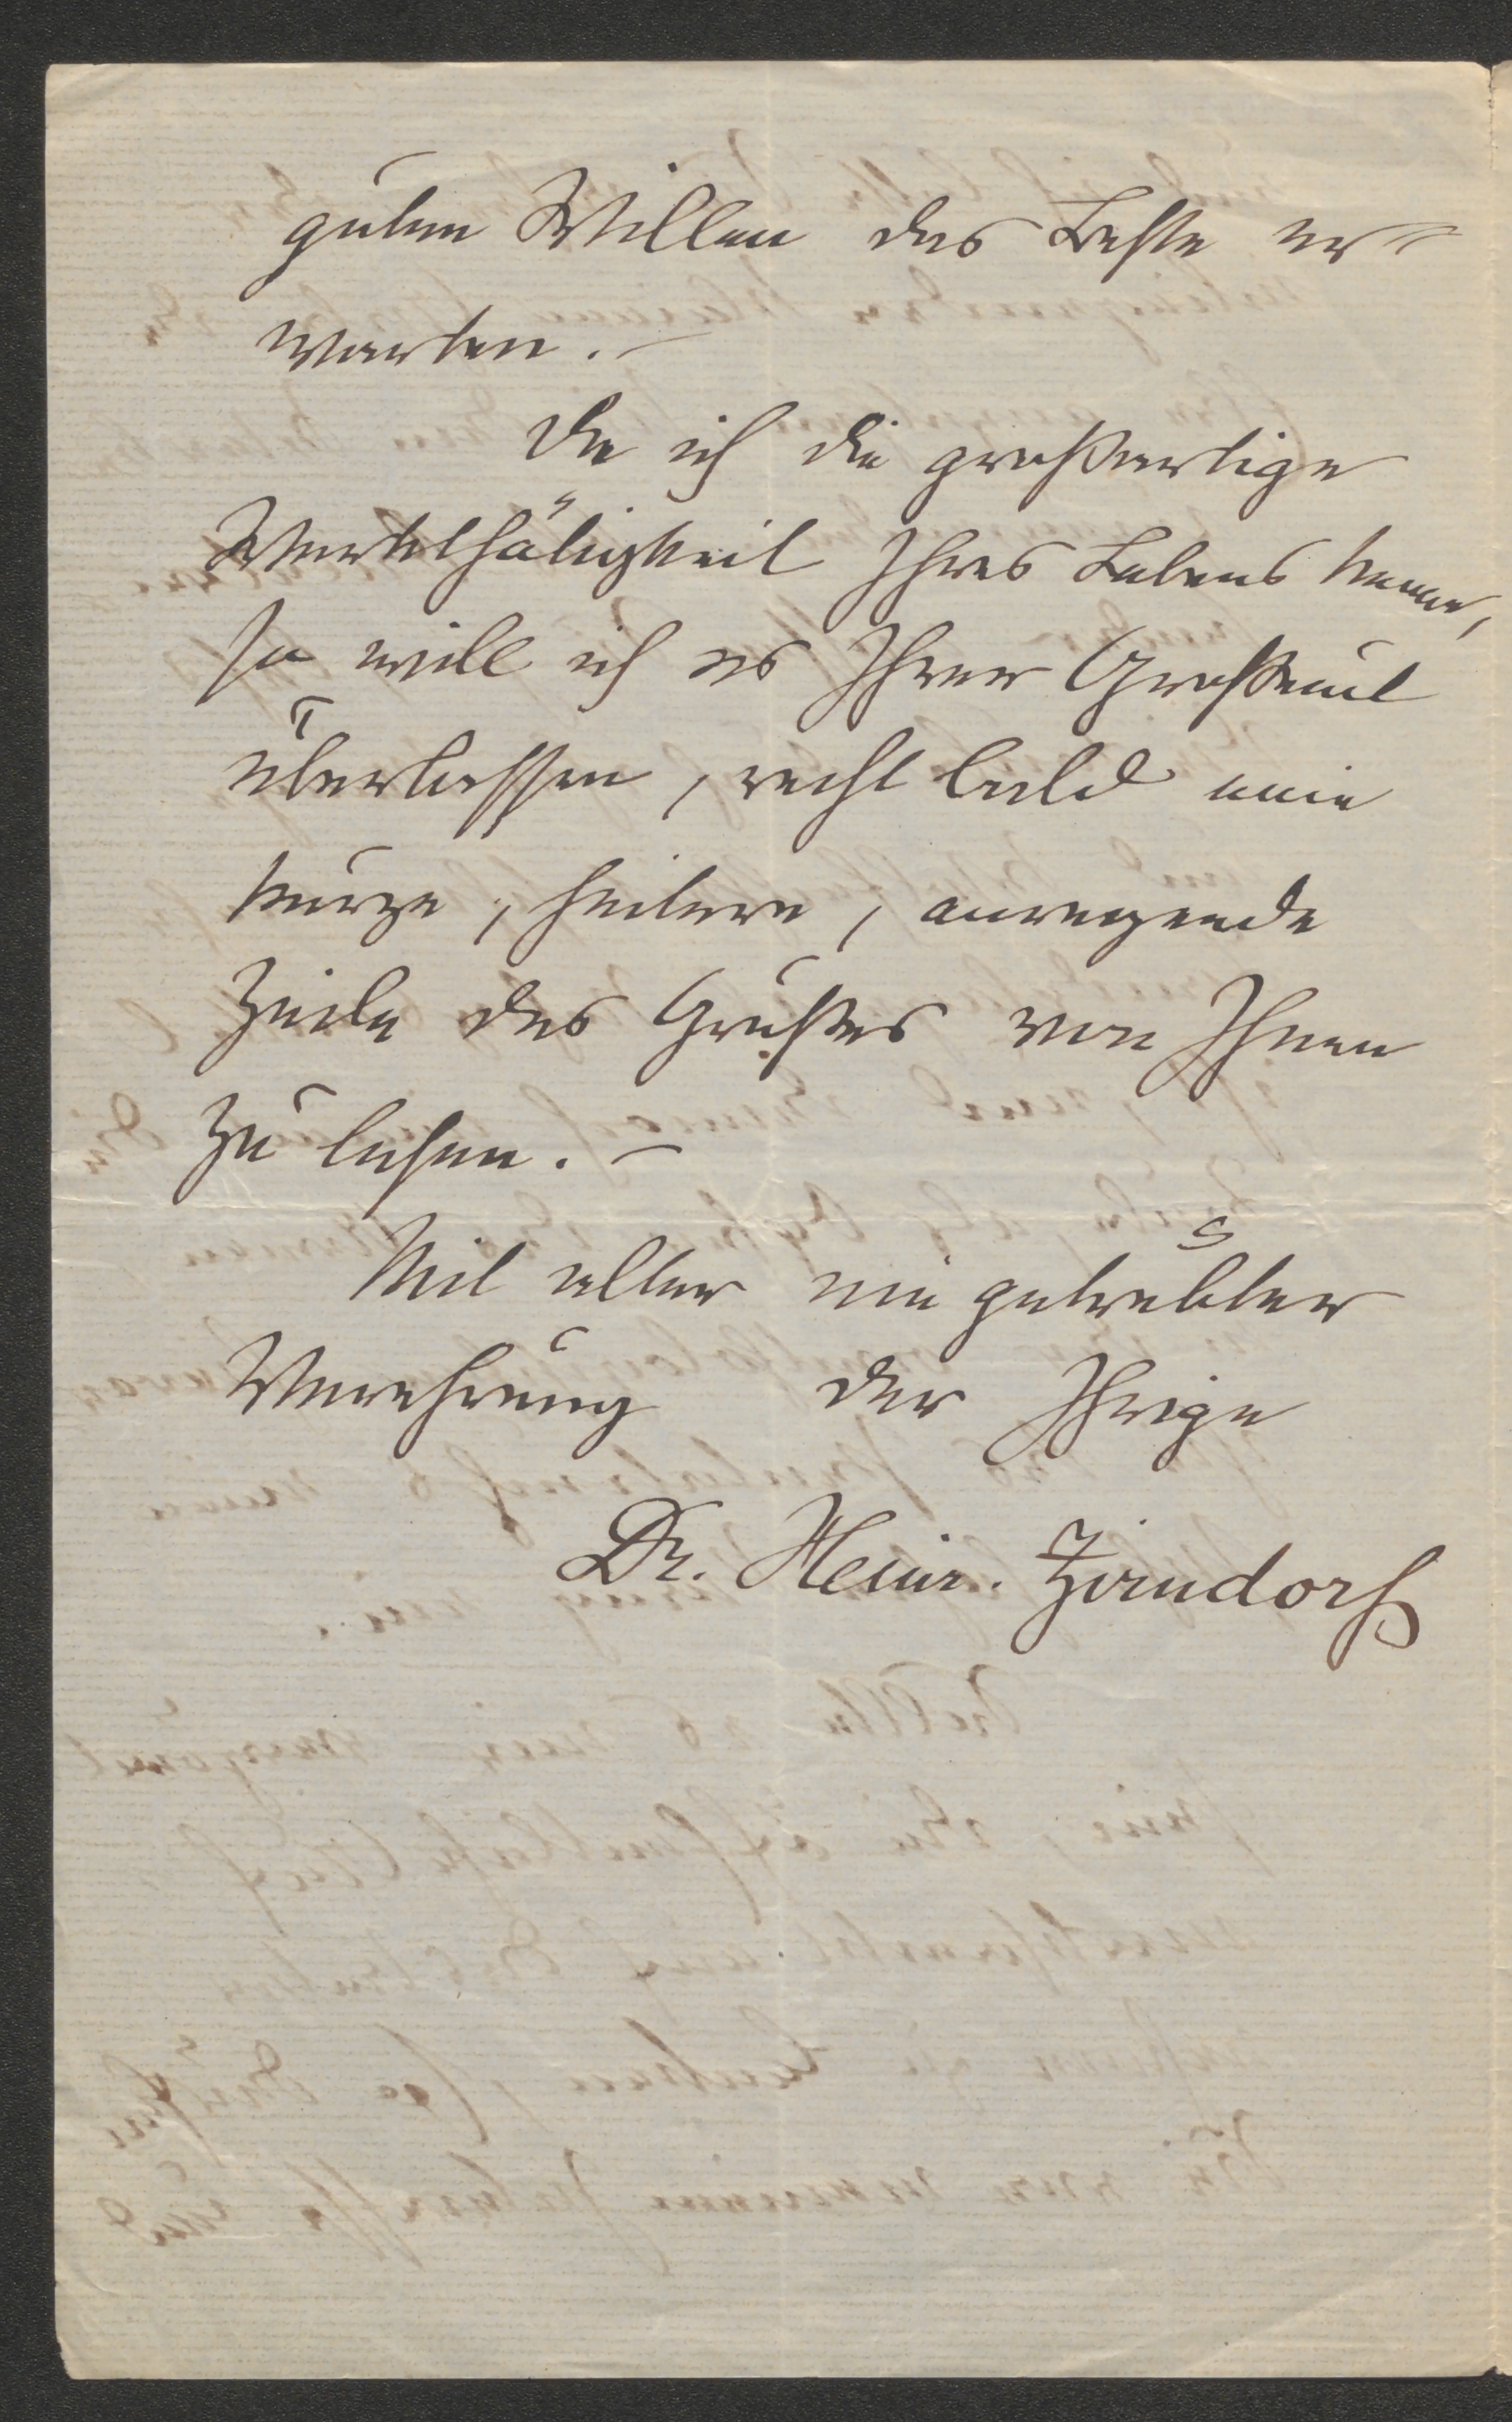 guten Willen das Beste er=
warten. –
Da ich die großartige
Werkthätigkeit Ihres Lebens kenne,
so will ich es Ihrer Großmut
überlassen, recht bald eine
kurze, heitere, anregende
Zeile des Grußes von Ihnen
zu lesen. –
Mit aller nie getrübter
Verehrung der Ihrige
Dr. Heinr. Zirndorf